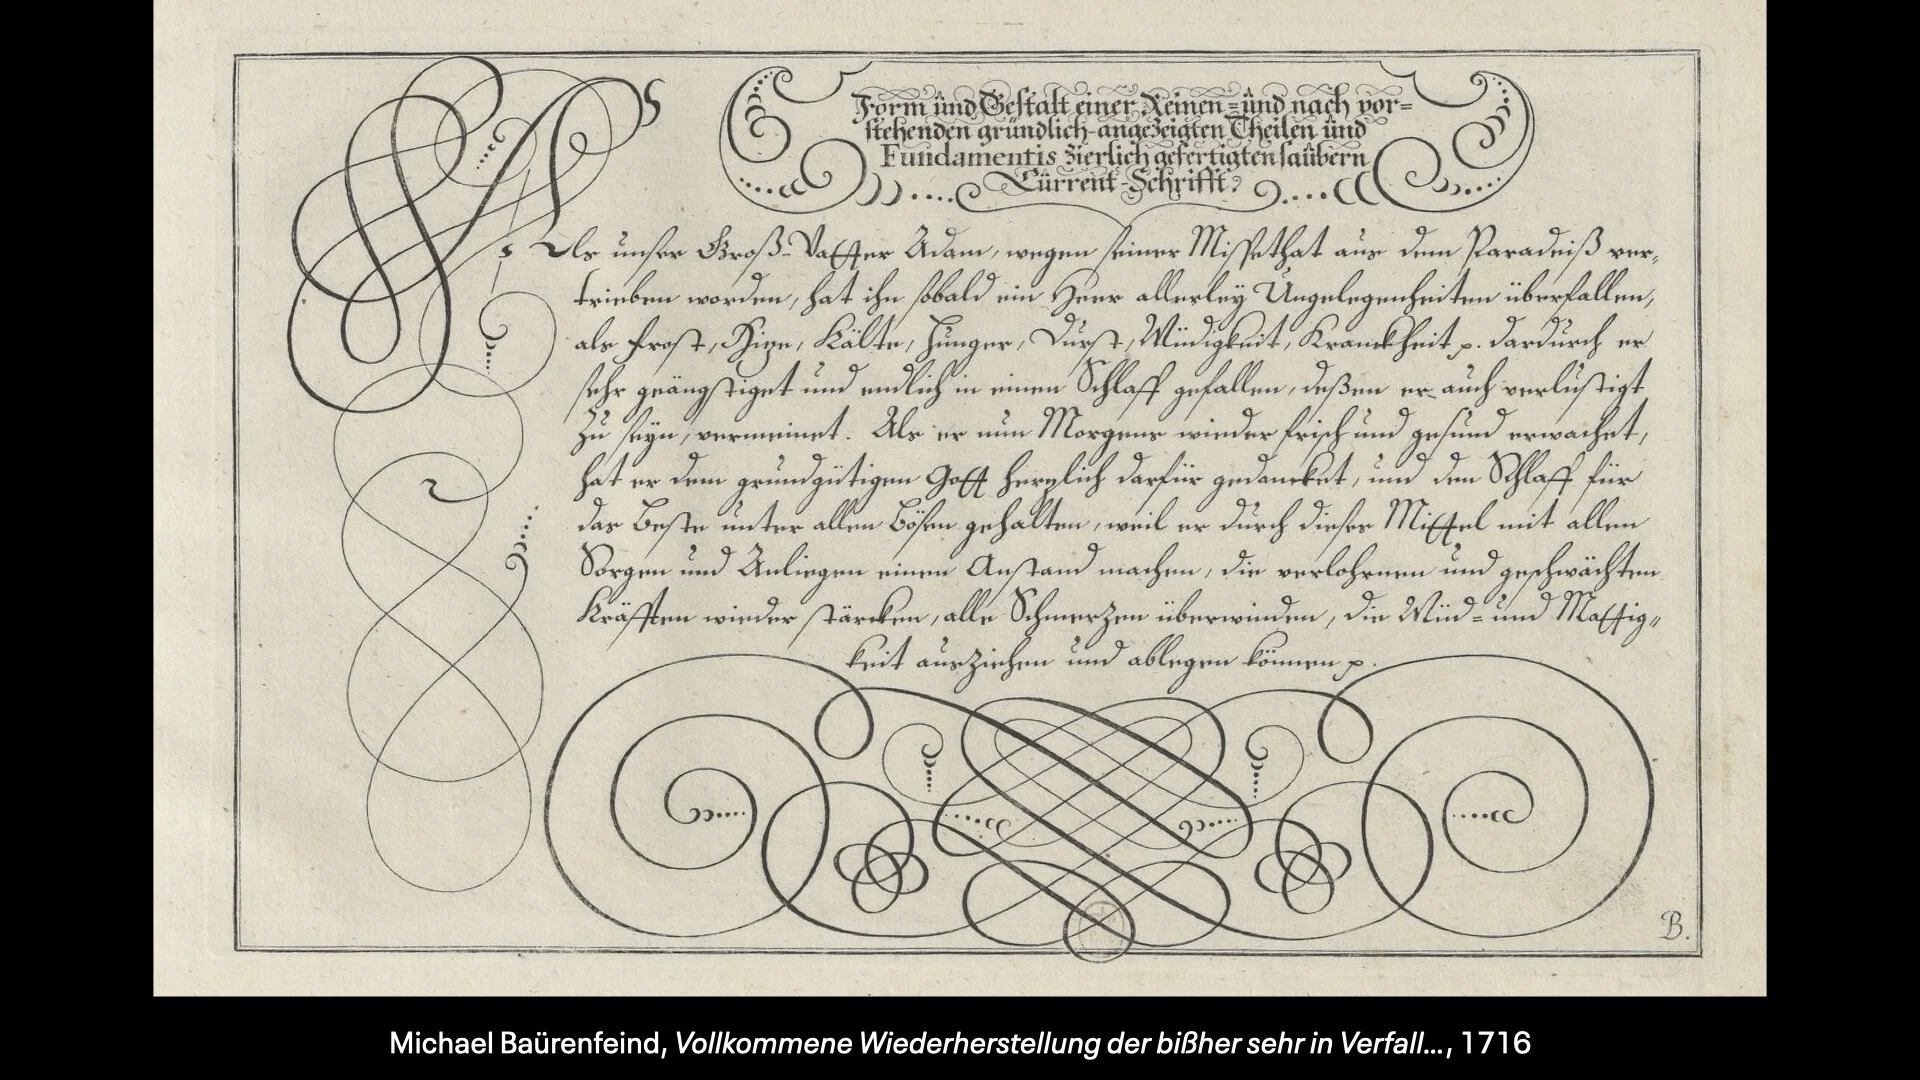 Form und Gestalt einer Reinen= und nach vor=
stehenden gründlich-angezeigten Theilen und
Fundamentis zierlich gefertigten saubern
Current-Schrifft.
Als unser Groß-Vatter Adam, wegen seiner Missethat aus dem Paradeiß ver=
trieben worden, hat ihn sobald ein Heer allerley Ungelegenheiten überfallen,
als Frost, Hitze, Kälte, Hunger, Durst, Müdigkeit, Kranckheit p. dardurch er
sehr geängstiget und endlich in einen Schlaff gefallen, deßen er auch verlustigt
zu seyn, vermeinet. Als er nun Morgens wieder frisch und gesund erwachet,
hat er dem grundgütigen Gott hertzlich darfür gedancket, und den Schlaff für
das Beste unter allen Bösen gehalten, weil er durch dieses Mittel mit allen
Sorgen und Anliegen einen Anstand machen, die verlohrnen und geschwächten
Kräfften wieder stärcken, alle Schmerzen überwinden, die Müd= und Mattig=
keit ausziehen und ablegen können p.
B.
Michael Baürenfeind, Vollkommene Wiederherstellung der bißher sehr in Verfall..., 1716